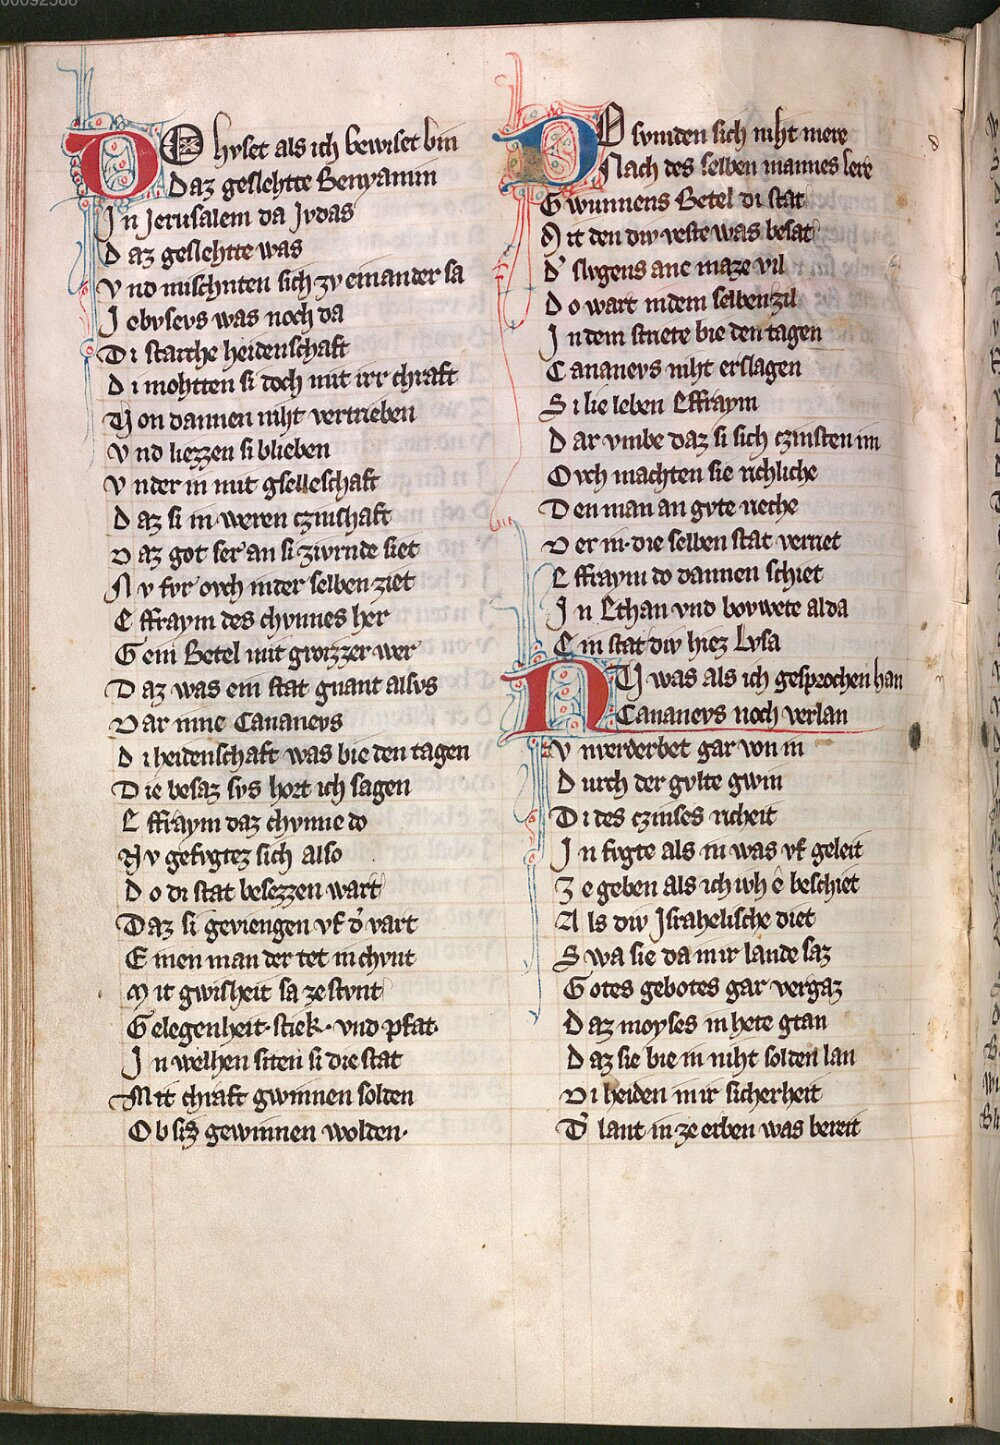 00092588
DO hvset als ich bewiset bin
Daz geslehtte Benyamin
Jn Jerusalem da Jvdas
Daz geslehtte was
Vnd mischnten sich zv einander sa
Jebvsevs was noch da
Di starche heidenschaft
Di mohtten si doch mit irr chraft
Von dannen niht vertrieben
Vnd liezzen si blieben
Vnder in mit gselleschaft
Daz si in weren czinshaft
Daz got ser an si zivrnde siet
Nv fvr ovch inder selben ziet
Effraym des chvnnes her
Gein Betel mit groizzer wer
Daz was ein stat gnant allvs
Dar inne Cananevs
Di heidenschaft was bie den tagen
Die besaz svs hort ich sagen
Effraym daz chvnne do
Nv gefvgtez sich also
Do di stat besezzen wart
Daz si geviengen vf d' vart
Einen man der tet in chvnt
Mit gwisheit sa ze stvnt
Gelegenheit· stiek· vnd pfat·
Jn welhen siten si die stat
Mit chraft gwinnen solden
Ob siz gewinnen wolden·
DO svmden sich niht mere
Nach des selben mannes lere
Gwunnens Betel di stat
Mit den div veste was besat
D' slvgens ane maze vil
Do wart indem selben zil
Jn dem striete bie den tagen
Cananevs niht erslagen
Si lie leben Effraym
Dar vmbe daz si sich czinsten im
Ovch machten sie richliche
Den man an gvte rieche
Der in· die selben stat verriet
Effraym do dannen schiet
Jn Ethan vnd bovwete alda
Ein stat div hiez Lvsa
NV was als ich gesprochen han
Cananevs noch verlan
Vnverderbet gar von in
Durch der gvlte gwin
Di des czinses richeit
Jn fvgte als in was vf geleit
Ze geben als ich iwh ê beschiet
Als div Jsrahelische diet
Swa sie da in ir lande saz
Gotes gebotes gar vergaz
Daz moyses in hete gtan
Daz sie bie in niht solden lan
Di heiden in ir sicherheit
D' lant in ze erben was bereit